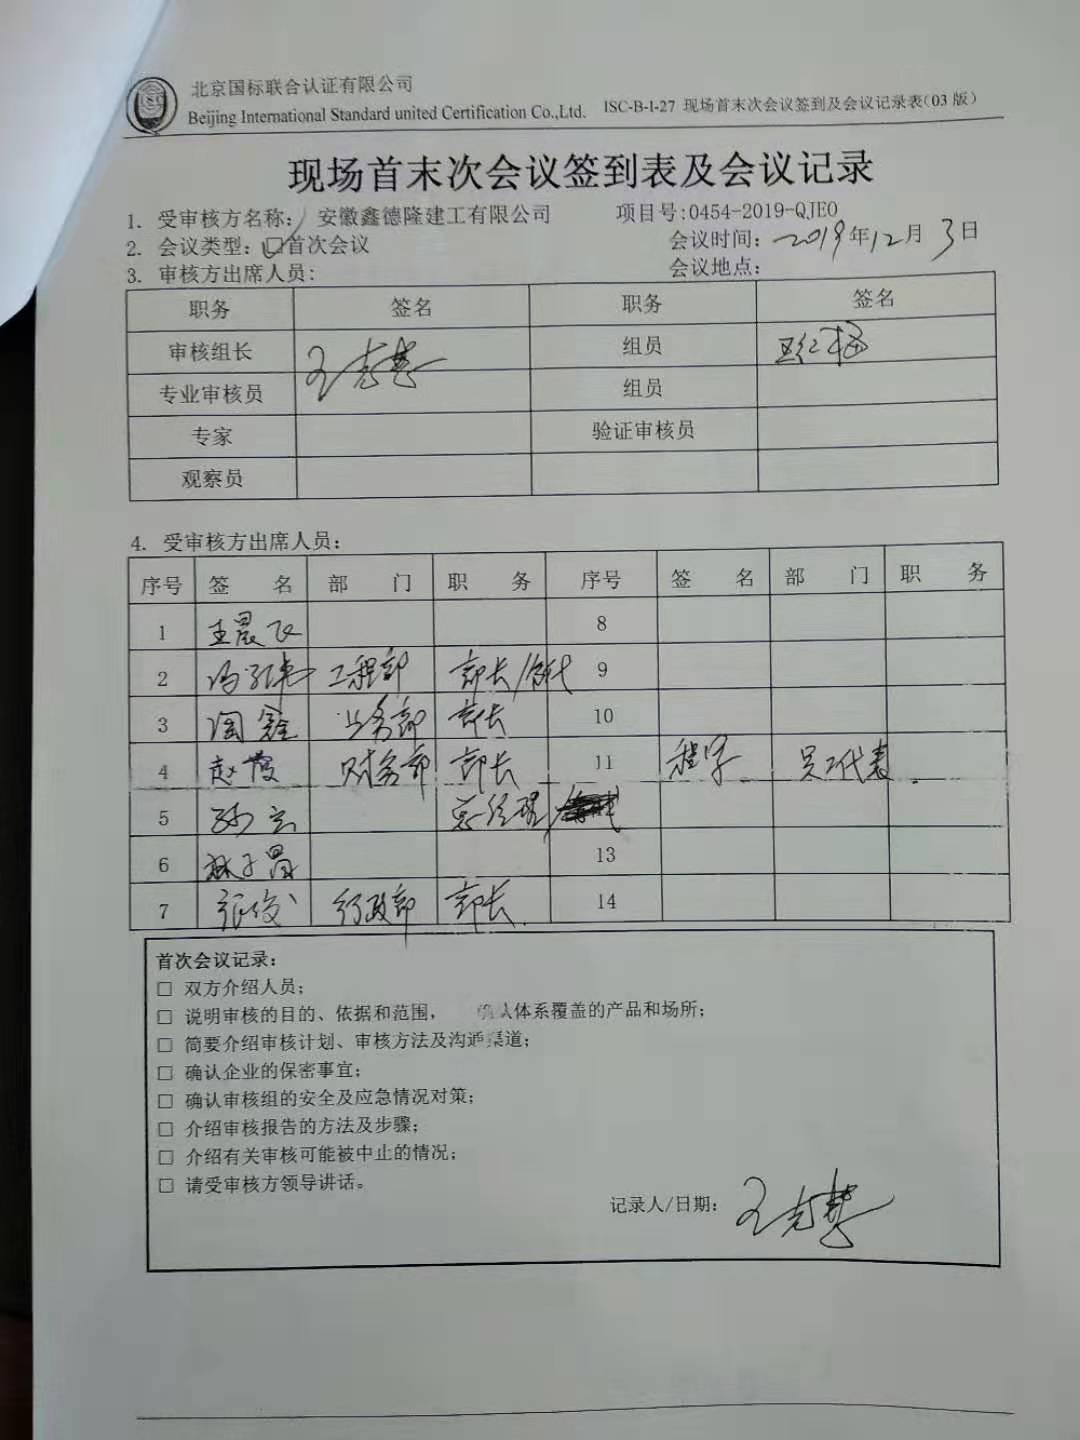 北京国标联合认证有限公司
Beijing International Standard united Certification Co.,Ltd. ISC-B-I-27 现场首末次会议签到及会议记录表(03 版)
现场首末次会议签到表及会议记录
1. 受审核方名称: 安徽鑫德隆建工有限公司 项目号:0454-2019-QJEO
2. 会议类型: 首次会议 会议时间: 2019年12月3日
3. 审核方出席人员: 会议地点:
职务 签名 职务 签名
审核组长 组员
专业审核员 组员
专家 验证审核员
观察员
4. 受审核方出席人员:
序号 签 名 部 门 职 务 序号 签 名 部 门 职 务
1 王晨飞 8
2 工程部 部长 9
3 陶鑫 业务部 部长 10
4 赵霞 财务部 部长 11 程学 员工代表
5 孙云 总经理
6 林子昌 13
7 张俊 行政部 部长 14
首次会议记录:
□ 双方介绍人员;
□ 说明审核的目的、依据和范围, 确认体系覆盖的产品和场所;
□ 简要介绍审核计划、审核方法及沟通渠道;
□ 确认企业的保密事宜;
□ 确认审核组的安全及应急情况对策;
□ 介绍审核报告的方法及步骤;
□ 介绍有关审核可能被中止的情况;
□ 请受审核方领导讲话。
记录人/日期: